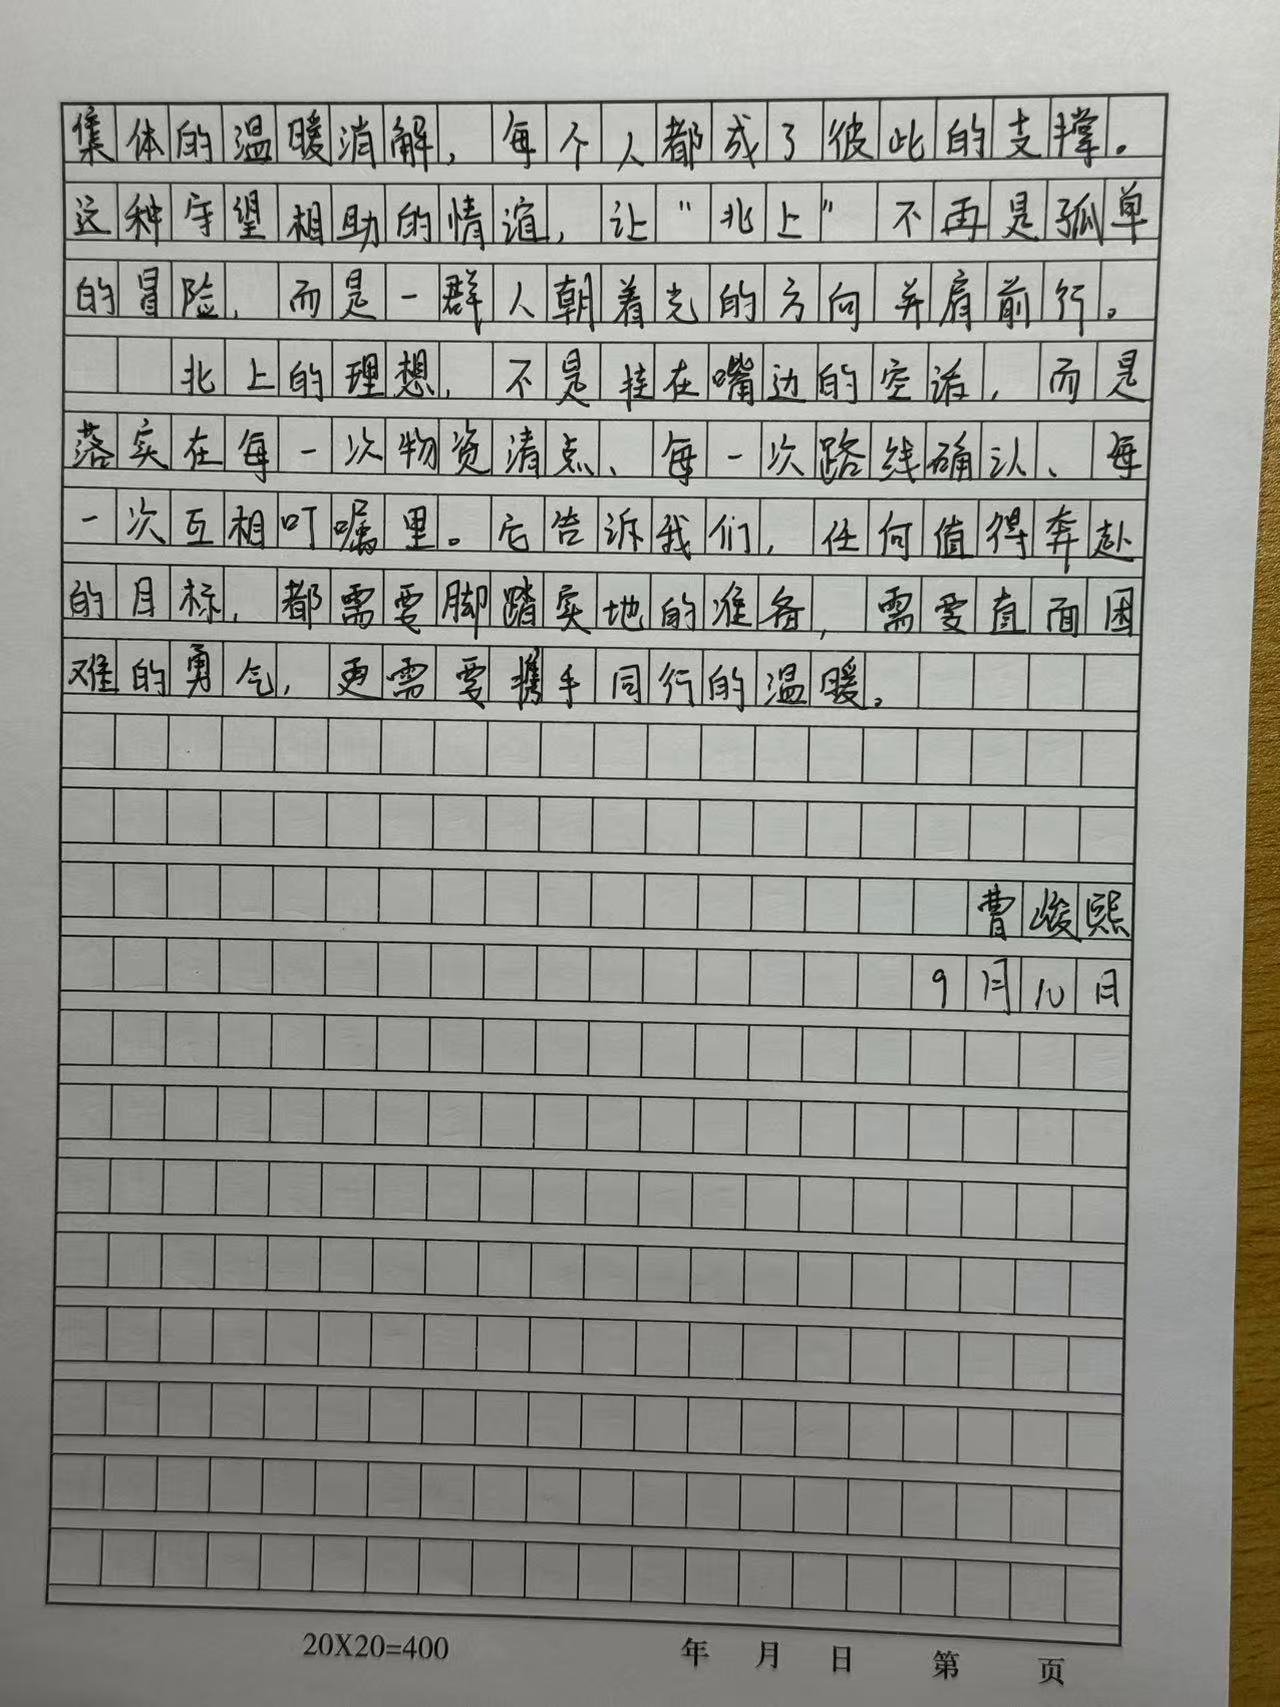 集体的温暖消解，每个人都成了彼此的支撑。
这种守望相助的情谊，让“北上”不再是孤单
的冒险，而是一群人朝着光的方向并肩前行。
北上的理想，不是挂在嘴边的空话，而是
落实在每一次物资清点、每一次路线确认、每
一次互相叮嘱里。它告诉我们，任何值得奔赴
的目标，都需要脚踏实地的准备，需要直面困
难的勇气，更需要携手同行的温暖。
曹峻熙
9月10日
20X20=400 年 月 日 第 页